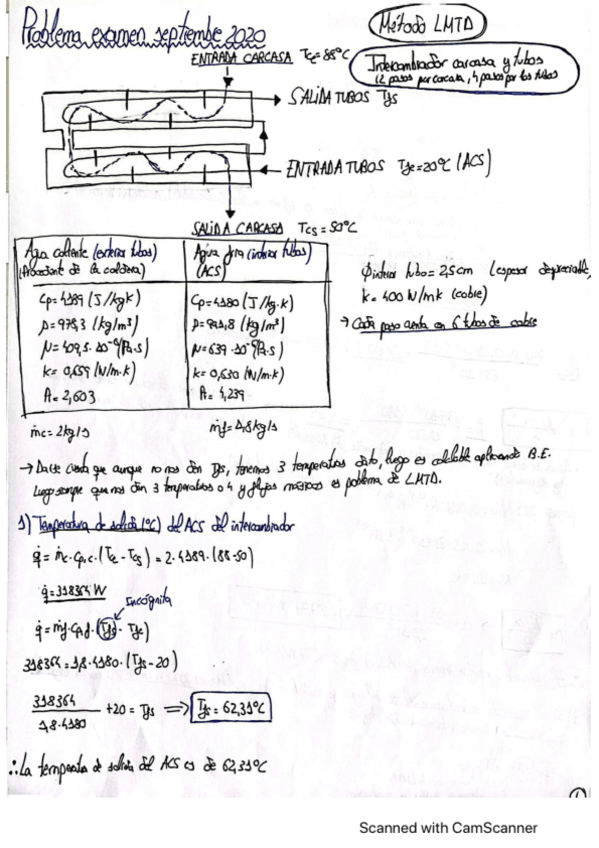 Problema examen septiembre 2020
Método LMTD
ENTRADA CARCASA Tce=88ºC
Intercambiador carcasa y tubos
(2 pasos por carcasa, 4 pasos por los tubos
SALIDA TUBOS Tfs
ENTRADA TUBOS Tfe=20ºC (ACS)
SALIDA CARCASA Tcs=50ºC
Agua caliente (exterior tubos)
(Procedente de la caldera)
Agua fría (interior tubos)
(ACS)
Cp=4189 (J/kgK)
Cp=4180 (J/kg·K)
μ=409,5·10⁻⁶(Pa·s)
μ=639·10⁻⁶(Pa·s)
K=0,659 (W/m·K)
K=0,630 (W/m·K)
Pr=2,603
Pr=4,239
ṁc=2kg/s
ṁf=1,8kg/s
Φinterior tubo=2,5cm (espesor despreciable)
K=400 W/mK (cobre)
→ Cada paso cuenta con 6 tubos de cobre
→ Date cuenta que aunque no nos den Tfs, tenemos 3 temperaturas dato, luego es calculable aplicando B.E.
Luego siempre que nos den 3 temperaturas o 4 y flujos másicos es problema de LMTD.
1) Temperatura de salida (ºC) del ACS del intercambiador
q̇=ṁc·Cp,c·(Tce-Tcs)=2·4189·(88-50)
q̇=318364W
Incógnita
q̇=ṁf·Cp,f·(Tfs-Tfe)
318364=1,8·4180·(Tfs-20)
318364
1,8·4180
+20=Tfs ⟹ Tfs=62,31ºC
∴ La temperatura de salida del ACS es de 62,31ºC
1
Scanned with CamScanner